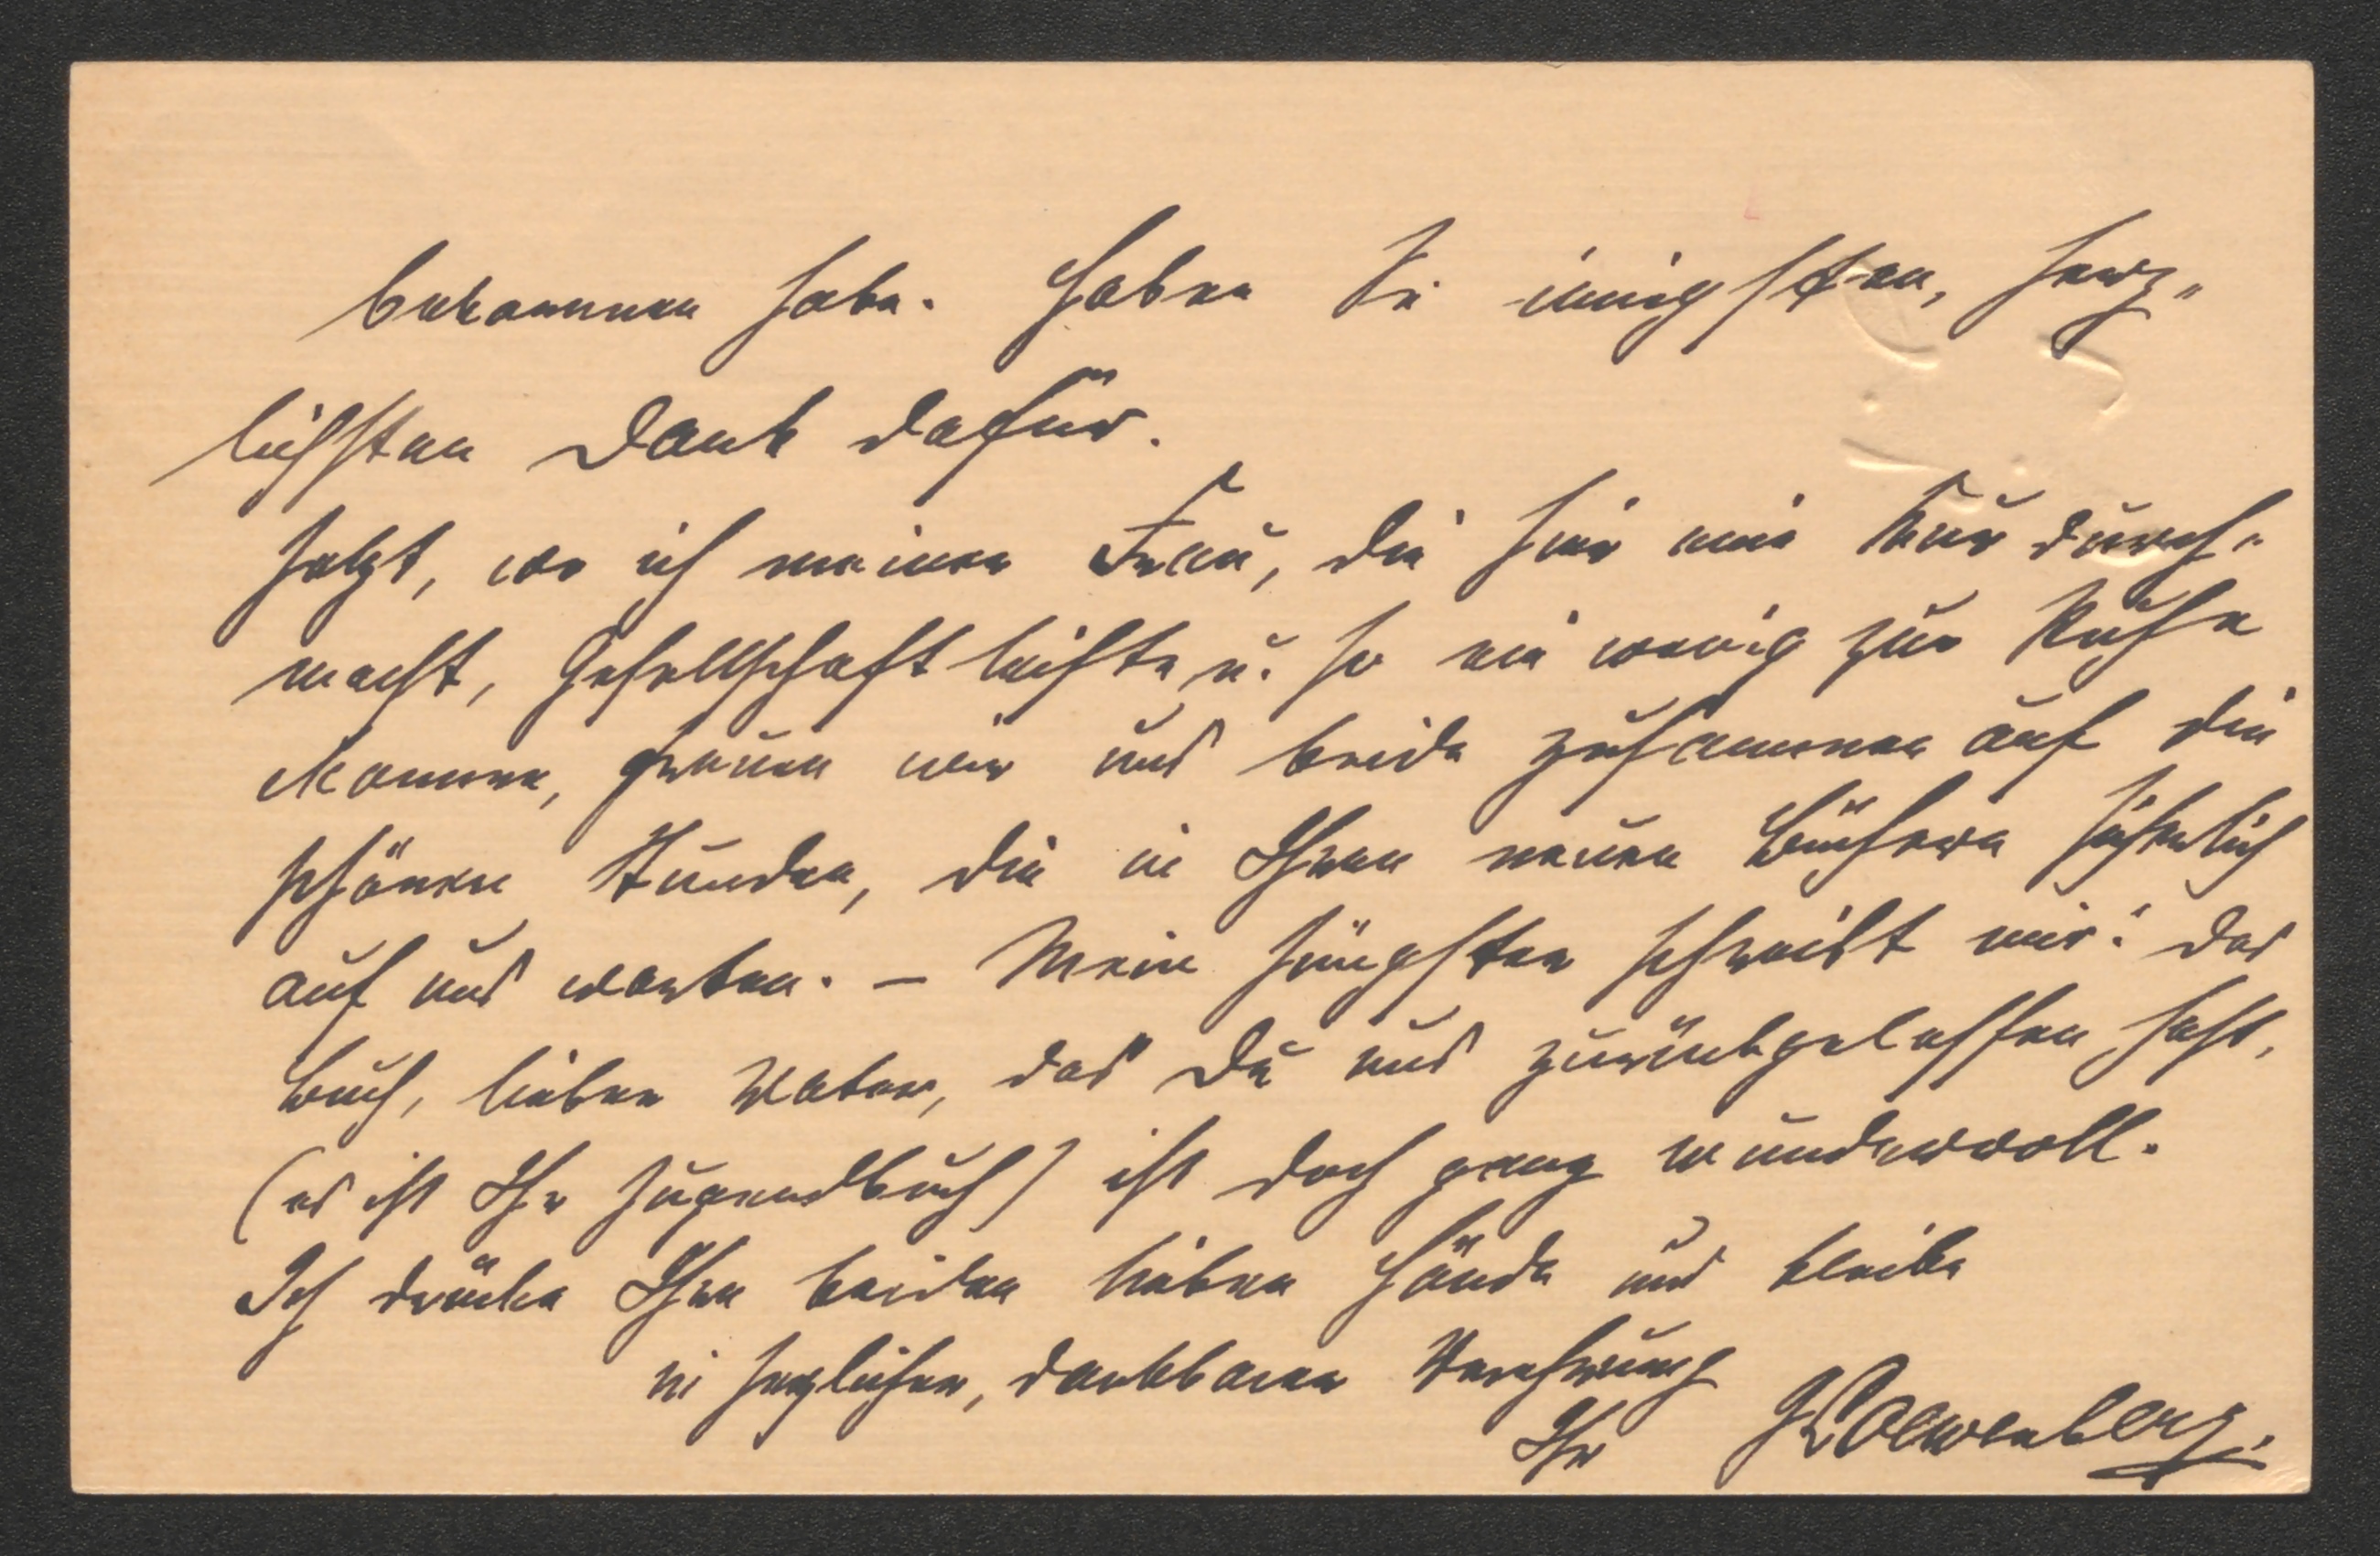 bekommen habe. Haben Sie innigsten, herz„
lichsten Dank dafür.
Jetzt, wo ich meiner Frau, die hier eine Kur durch„
macht, Gesellschaft leiste u. so ein wenig zur Ruhe
komme, freuen wir uns beide zusammen auf die
schönen Stunden, die in Ihren neuen Büchern sicherlich
auf uns warten. – Mein Jüngster schreibt mir: das
Buch, lieber Vater, das Du uns zurückgelassen hast,
(es ist Ihr Jugendbuch) ist doch ganz wundervoll.
Ich drücke Ihre beiden lieben Hände und bleibe
in herzlicher, dankbarer Verehrung
Ihr JLoewenberg.